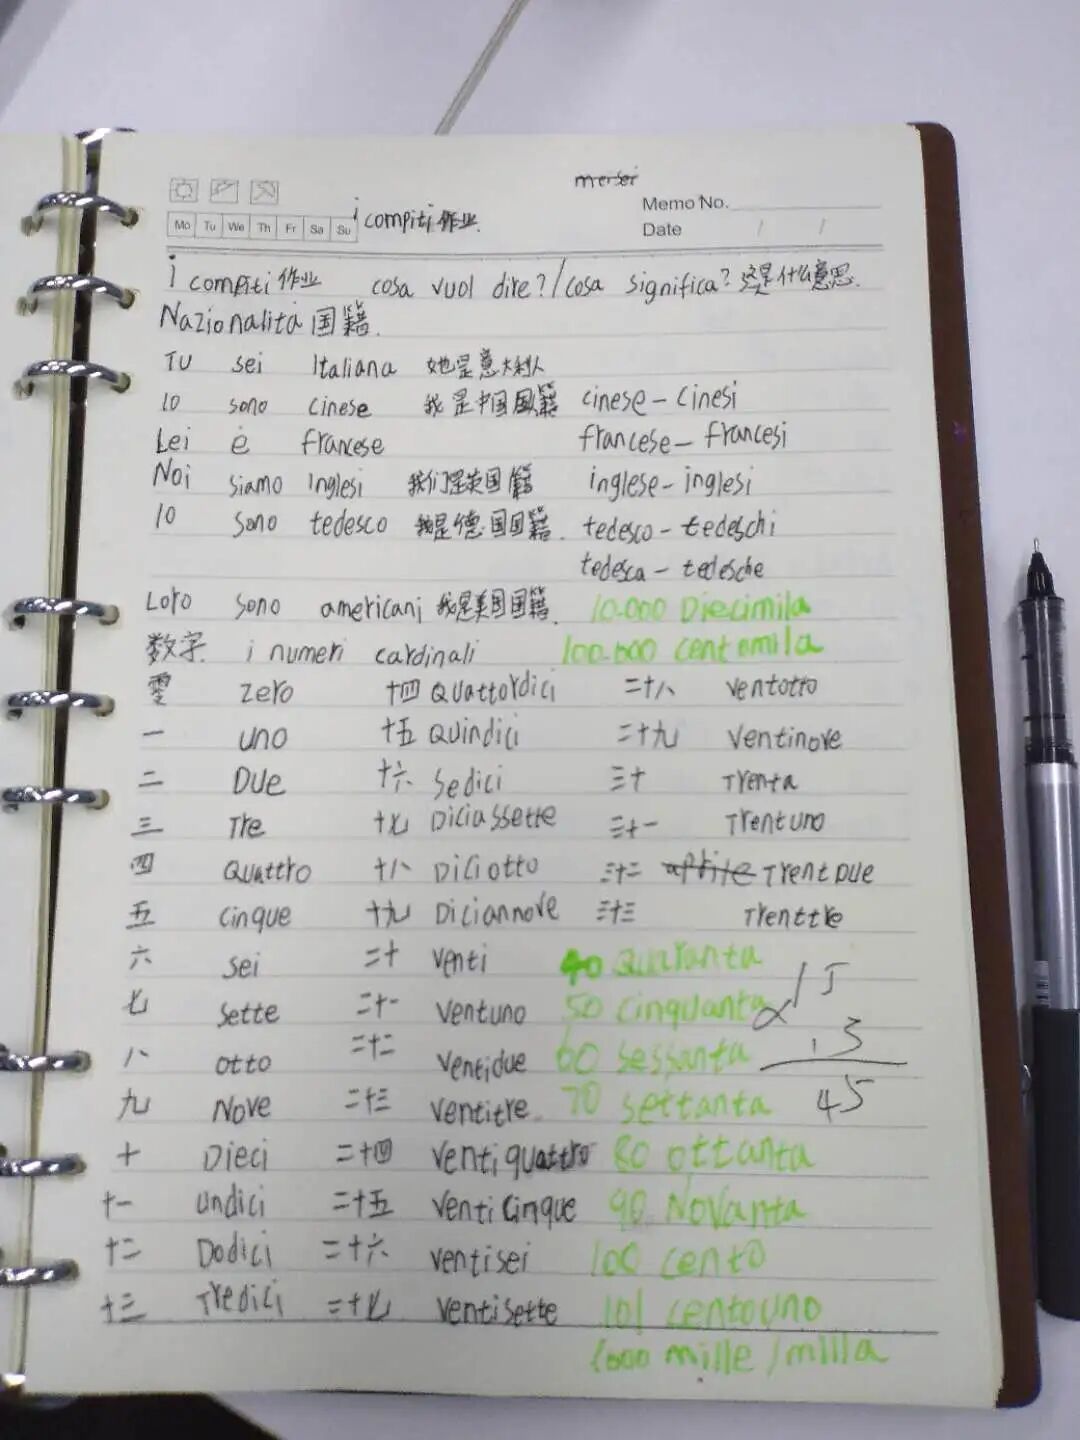 mersei
Memo No.
Mo Tu We Th Fr Sa Su i compiti 作业. Date / /
i compiti 作业 cosa vuol dire?/cosa significa? 这是什么意思.
Nazionalità 国籍.
TU sei Italiana 她是意大利人
IO sono cinese 我是中国国籍 cinese - cinesi
Lei è francese francese - francesi
Noi siamo Inglesi 我们是英国籍 inglese - inglesi
IO sono tedesco 我是德国国籍. tedesco - tedeschi
tedesca - tedesche
Loro sono americani 我是美国国籍. 10.000 Diecimila
数字. i numeri cardinali 100.000 centomila
零 zero 十四 Quattordici 二十八 ventotto
一 uno 十五 Quindici 二十九 ventinove
二 DUE 十六 Sedici 三十 Trenta
三 Tre 十七 Diciassette 三十一 Trentuno
四 Quattro 十八 Diciotto 三十二 TrentDUE
五 cinque 十九 Diciannove 三十三 Trenttre
六 sei 二十 venti 40 Quaranta
七 sette 二十一 ventuno 50 cinquanta 15
八 otto 二十二 ventidue 60 sessanta 3
九 Nove 二十三 ventitre 70 settanta 45
十 Dieci 二十四 ventiquattro 80 ottanta
十一 undici 二十五 venticinque 90 Novanta
十二 Dodici 二十六 ventisei 100 cento
十三 Tredici 二十七 ventisette 101 centouno
1000 mille/milla